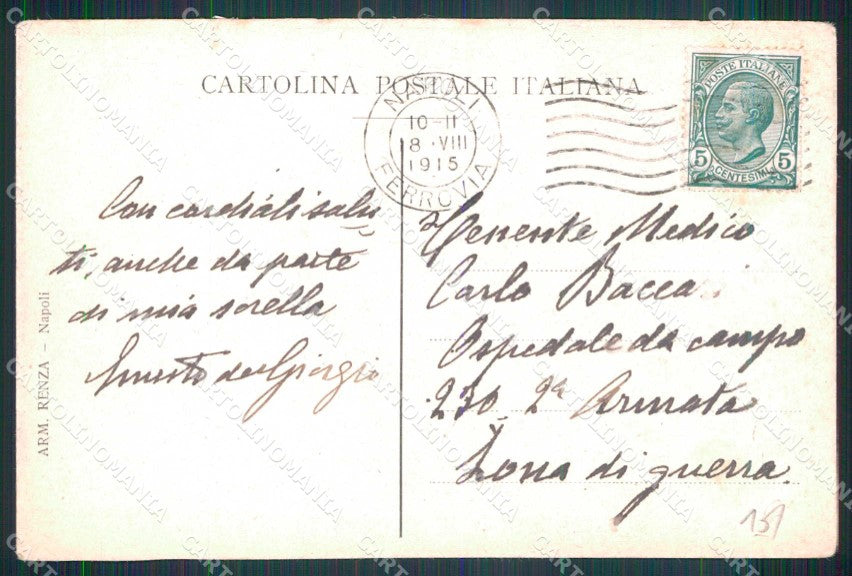 CARTOLINA POSTALE ITALIANA
NAPOLI
10-11
8 · VIII
1915
FERROVIA
POSTE ITALIANE
5 5
CENTESIMI
Con cordiali salu
ti, anche da parte
di mia sorella
Ernesto de Giorgio
Tenente Medico
Carlo Bacca
Ospedale da campo
230. 2ª Armata
Zona di guerra.
ARM. RENZA – Napoli
151
CARTOLINOMANIA